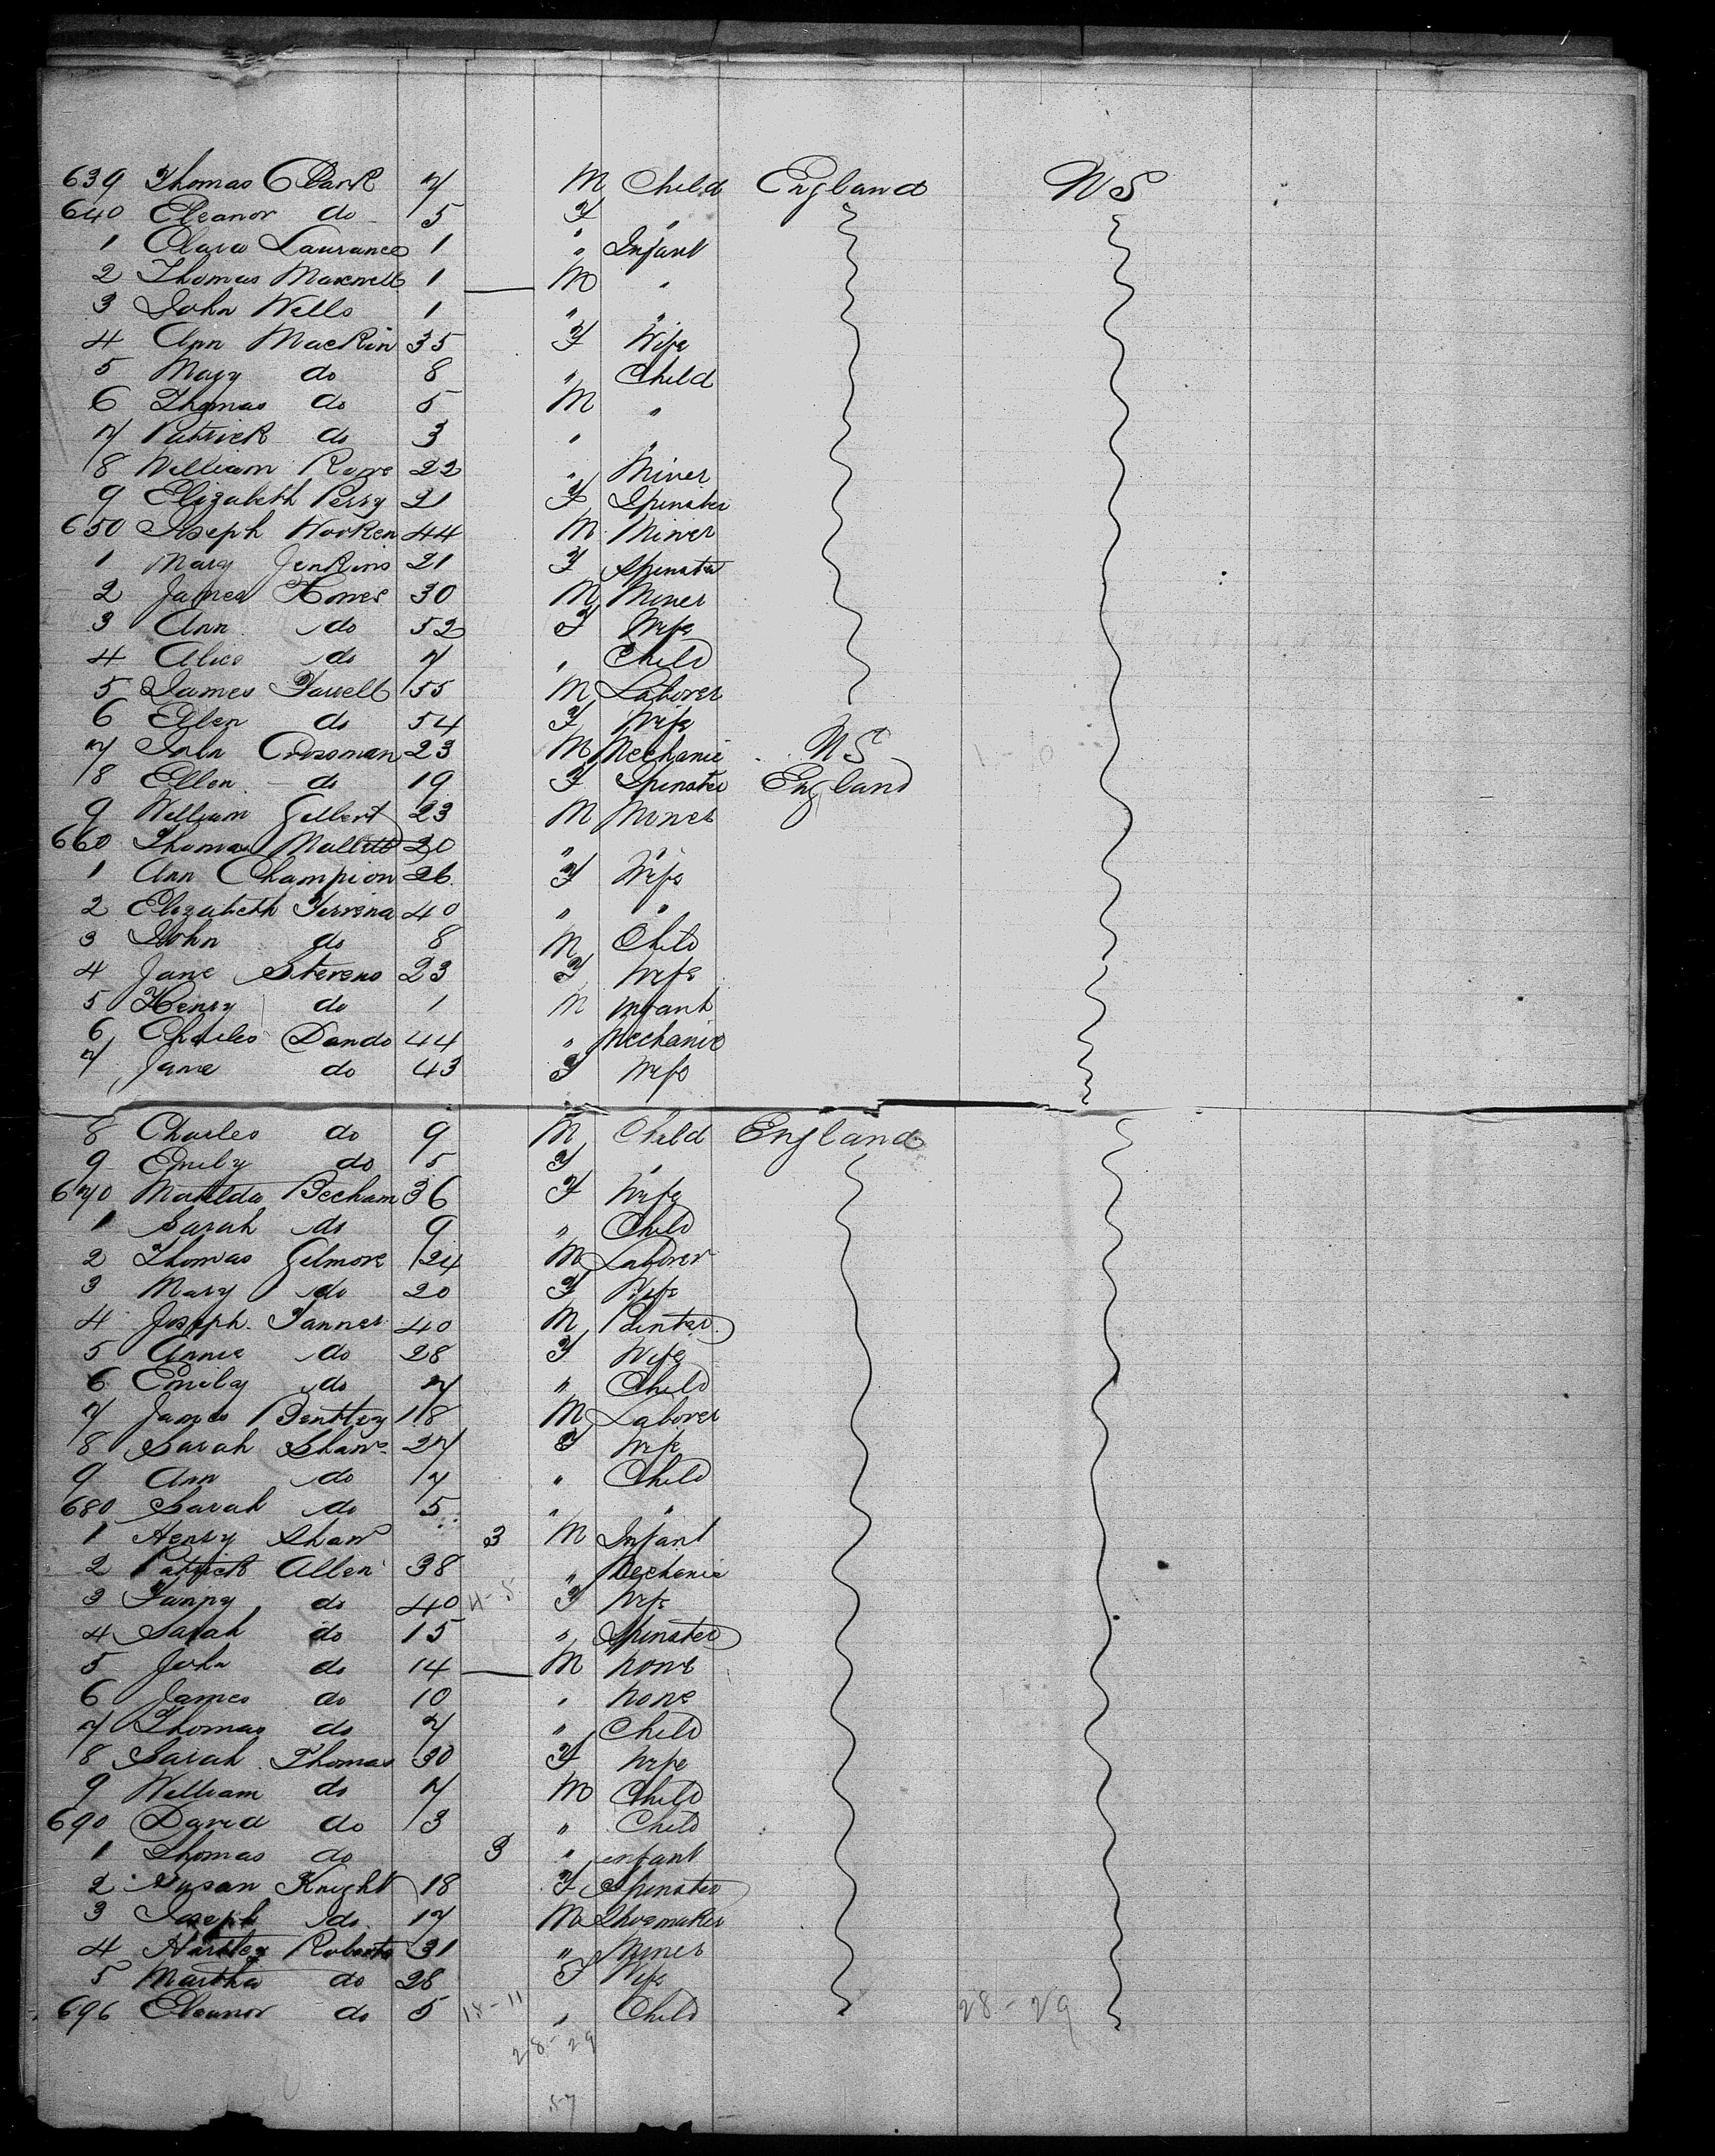 639 Thomas Clark 7 M Child England U S
640 Eleanor do 5 F "
1 Clara Laurance 1 " Infant
2 Thomas Maxwell 1 M "
3 John Wells 1 " "
4 Ann Mackin 35 F Wife
5 Mary do 8 " Child
6 Thomas do 5 M "
7 Patrick do 3 " "
8 William Rowe 22 " Miner
9 Elizabeth Perry 21 F Spinster
650 Joseph Worken 44 M Miner
1 Mary Jenkins 21 F Spinster
2 James 30 M Miner
3 Ann do 52 F Wife
4 Alice do 7 " Child
5 James Farrell 55 M Laborer
6 Ellen do 54 F Wife
7 John Crossman 23 M Mechanic U S
8 Ellen do 19 F Spinster England
9 William Gilbert 23 M Miner
660 Thomas Mallett 20 " "
1 Ann Champion 26 F Wife
2 Elizabeth 40 " "
3 John do 8 M Child
4 Jane Stevens 23 F Wife
5 Henry do 1 M Infant
6 Charles Dando 44 " Mechanic
7 Jane do 43 F Wife
8 Charles do 9 M Child England
9 Emily do 5 F "
670 Matilda Becham 36 F Wife
1 Sarah do 9 " Child
2 Thomas Gilmore 24 M Laborer
3 Mary do 20 F Wife
4 Joseph Tanner 40 M Painter
5 Annie do 28 F Wife
6 Emily do 7 " Child
7 James Benttey 18 M Laborer
8 Sarah Shaw 27 F Wife
9 Ann do 7 " Child
680 Sarah do 5 " "
1 Henry Shaw 3 M Infant
2 Patrick Allen 38 " Mechanic
3 Fanny do 40 F Wife
4 Sarah do 15 " Spinster
5 John do 14 M none
6 James do 10 " none
7 Thomas do 7 " Child
8 Sarah Thomas 30 F Wife
9 William do 7 M Child
690 David do 3 " Child
1 Thomas do 3 " infant
2 Susan Knight 18 F Spinster
3 Joseph do 17 M Shoemaker
4 Hartley Roberts 31 " Miner
5 Martha do 28 F Wife
696 Eleanor do 5 18-11 " Child 28-29
28-29
57